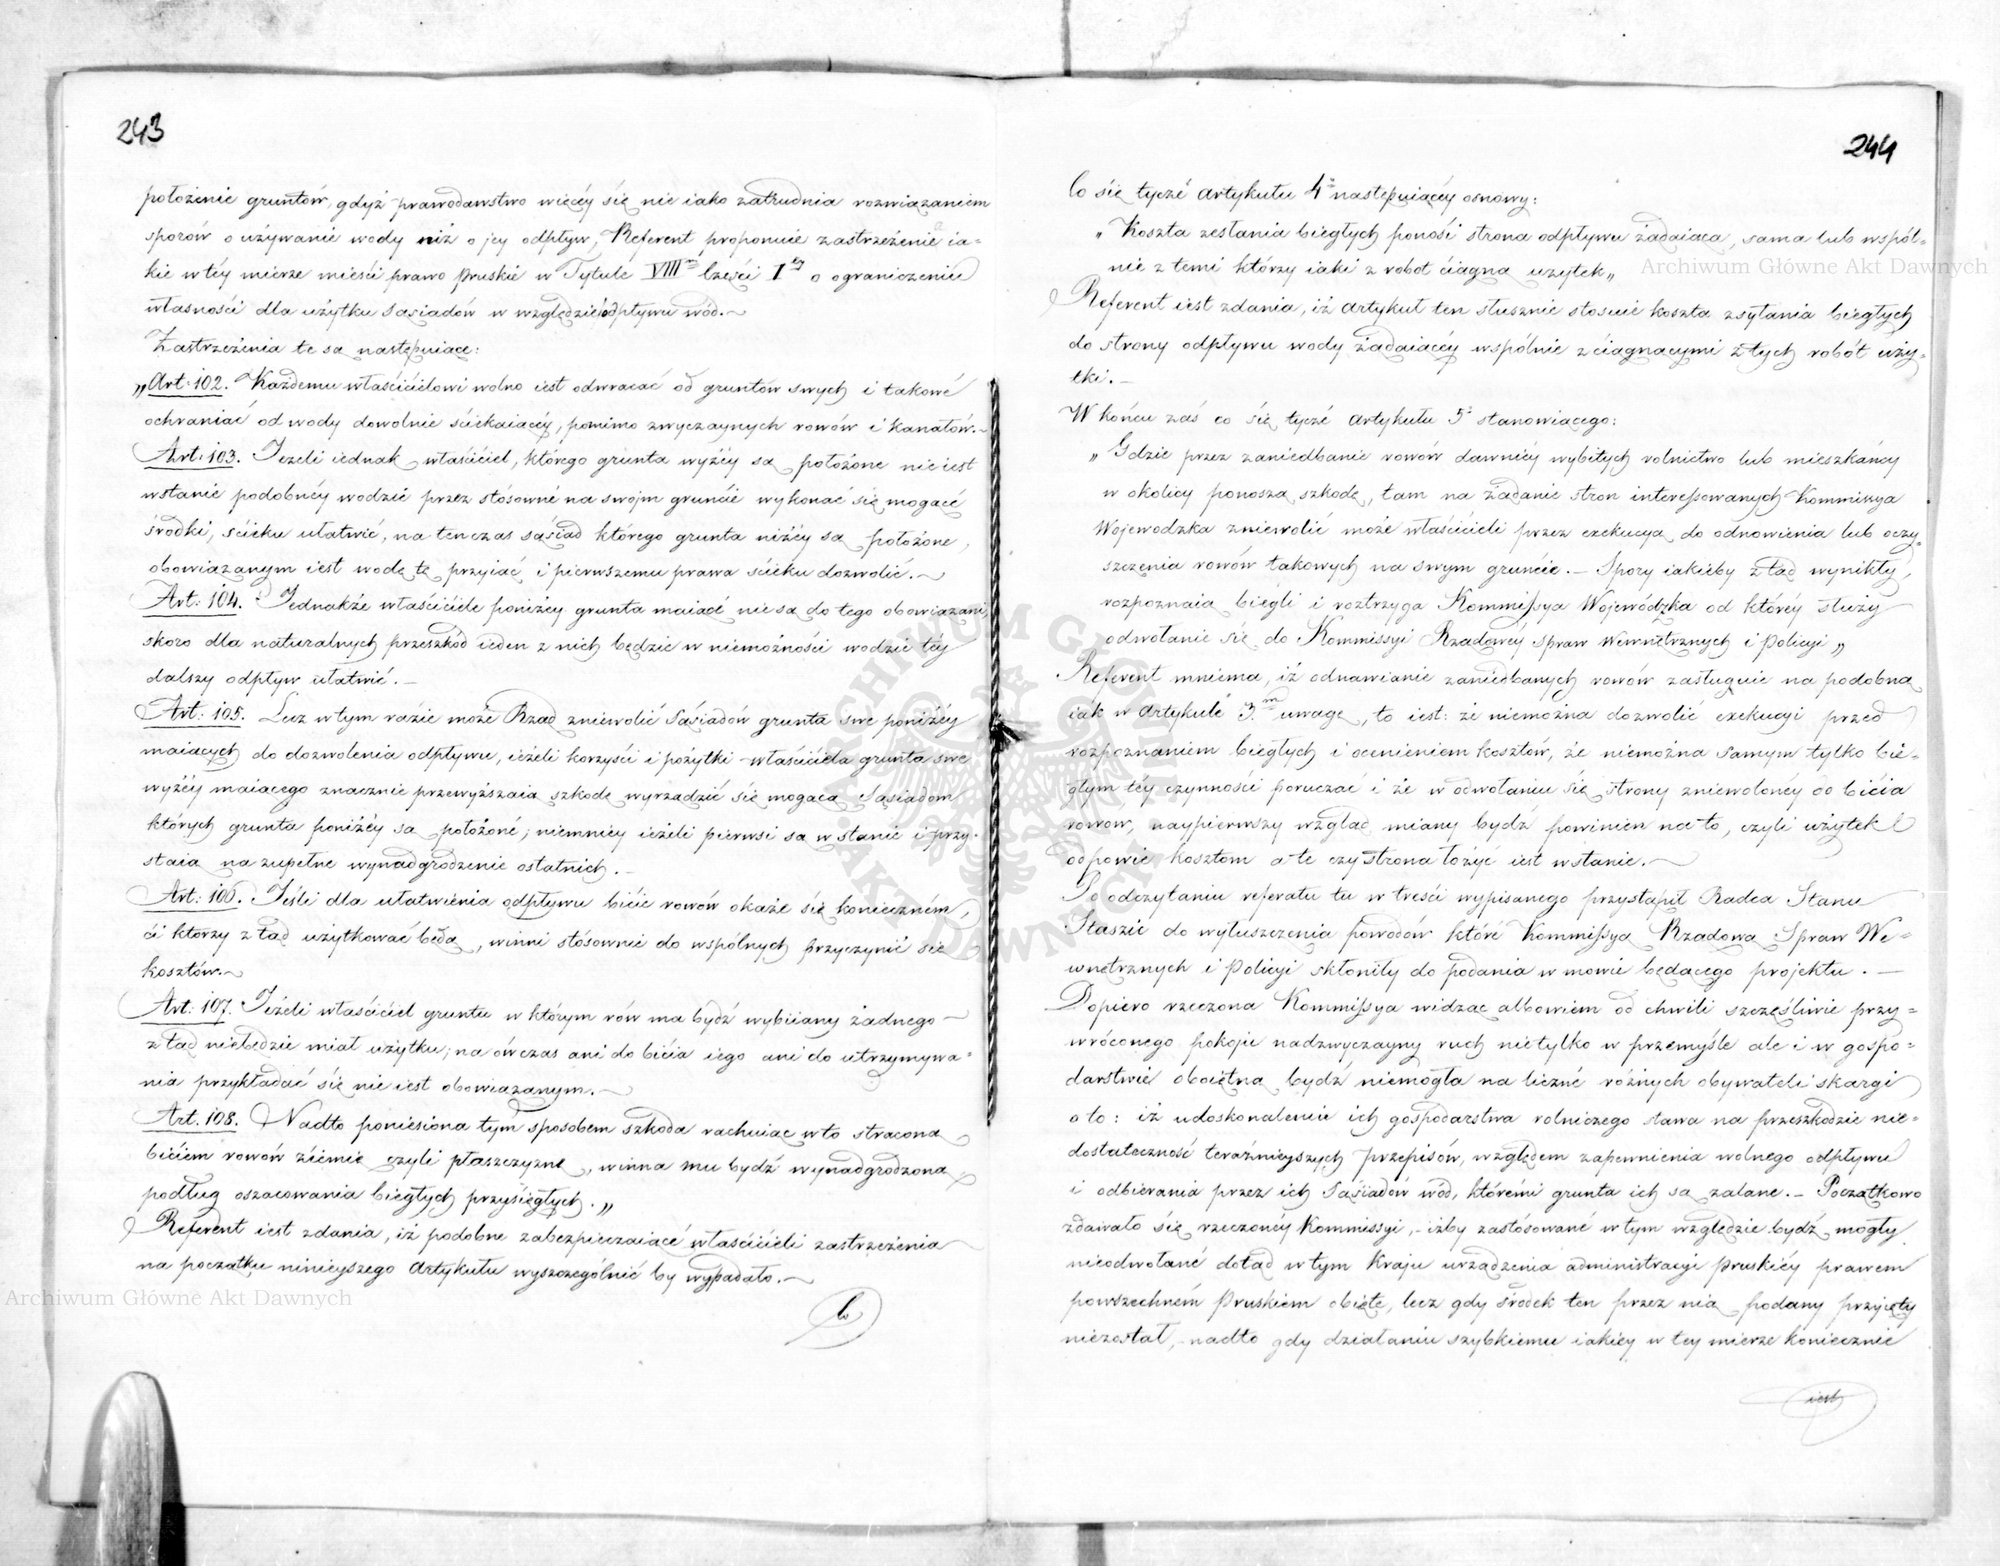 243
położenie gruntów, gdyż prawodawstwo więcéy się nie iako zatrudnia rozwiązaniem
sporów o używanie wody niż o jey odpływ, Referent proponuie zastrzeżenie ia-
kie w téy mierze mieści prawo Pruskie w Tytule VIII Części I o ograniczeniu
własności dla użytku Sąsiadów w względzie odpływu wód.
Zastrzeżenia te są następuiące:
„Art: 102. Każdemu właścicielowi wolno iest odwracać od gruntów swych i takowe
ochraniać od wody dowolnie ściekaiącéy, pomimo zwyczaynych rowów i kanałów.
Art: 103. Jeżeli iednak właściciel, którego grunta wyżéy są położone nie iest
wstanie podobnéy wodzie przez stósowne na swojm gruncie wykonać się mogące
środki, ścieku ułatwić, na ten czas sąsiad którego grunta niżéy są położone,
obowiązanym iest wodę tę przyiąć i pierwszemu prawa ścieku dozwolić.
Art: 104. Jednakże właściciele poniżéy grunta maiące nie są do tego obowiązani,
skoro dla naturalnych przeszkód ieden z nich będzie w niemożności wodzie téy
dalszy odpływ ułatwić.
Art: 105. Lecz w tym razie może Rząd zniewolić Sąsiadów grunta swe poniżéy
maiących do dozwolenia odpływu, ieżeli korzyści i pożytki właściciela grunta swe
wyżéy maiącego znacznie przewyższaią szkodę wyrządzić się mogącą Sąsiadom
których grunta poniżéy są położone; niemniéy ieżeli pierwsi są w stanie i przy-
staią na zupełne wynadgrodzenie ostatnich.
Art: 106. Jeśli dla ułatwienia odpływu bicie rowów okaże się koniecznem,
ci którzy z tąd użytkować będą, winni stósownie do wspólnych przyczynić się
kosztów.
Art: 107. Jeżeli właściciel gruntu w którym rów ma bydź wybiiany żadnego
z tąd niebędzie miał użytku; na ówczas ani do bicia iego ani do utrzymywa-
nia przykładać się nie iest obowiązanym.
Art. 108. Nadto poniesiona tym sposobem szkoda rachuiąc w to straconą
biciem rowów ziemię czyli płaszczyznę, winna mu bydź wynadgrodzona
podług oszacowania biegłych przysięgłych.„
Referent iest zdania, iż podobne zabezpieczaiące właścicieli zastrzeżenia
na początku ninieyszego Artykułu wyszczególnić by wypadało.
Co
244
Co się tycze Artykułu 4 następuiącéy osnowy:
„Koszta zesłania biegłych ponosi strona odpływu żądaiąca, sama lub wspól-
nie z temi którzy iaki z robot ciągną użytek„
Referent iest zdania, iż Artykuł ten słusznie stosuie koszta zsyłania biegłych
do strony odpływu wody żądaiącéy wspólnie z ciągnącymi z tych robót uży-
tki.
W końcu zaś co się tycze Artykułu 5 stanowiącego:
„Gdzie przez zaniedbanie rowów dawniéy wybitych rolnictwo lub mieszkańcy
w okolicy ponoszą szkodę, tam na żądanie stron interessowanych Kommissya
Wojewodzka zniewolić może właścicieli przez exekucyą do odnowienia lub oczy-
szczenia rowów takowych na swym gruncie. Spory iakieby z tąd wynikły,
rozpoznaią biegli i roztrzyga Kommissya Wojewódzka od któréy służy
odwołanie się do Kommissyi Rządowéy Spraw Wewnętrznych i Policyi„
Referent mniema, iż odnawianie zaniedbanych rowów zasługuie na podobną
iak w Artykule 3 uwagę, to iest: że niemożna dozwolić exekucyi przed
rozpoznaniem biegłych i ocenieniem kosztów, że niemożna samym tylko bie-
głym téy czynności poruczać i że w odwołaniu się strony zniewolonéy do bicia
rowów, naypierwszy wzgląd miany bydź powinien na to, czyli użytek
odpowie kosztom a te czy strona łożyć iest wstanie.
Po odczytaniu referatu tu w treści wypisanego przystąpił Radca Stanu
Staszic do wyłuszczenia powodów które Kommissyą Rządową Spraw We-
wnętrznych i Policyi skłoniły do podania w mowie będącego projektu.
Dopiero rzeczona Kommissya widząc albowiem od chwili szczęśliwie przy-
wróconego pokoju nadzwyczayny ruch nietylko w przemyśle ale i w gospo-
darstwie oboiętną bydź niemogła na liczne różnych obywateli skargi
o to: iż udoskonaleniu ich gospodarstwa rolniczego stawa na przeszkodzie nie-
dostateczność teraźnieyszych przepisów, względem zapewnienia wolnego odpływu
i odbierania przez ich Sąsiadów wód, któremi grunta ich są zalane. Początkowo
zdawało się rzeczonéy Kommissyi, iżby zastósowane w tym względzie bydź mogły
nieodwołane dotąd w tym kraju urządzenia administracyi Pruskiéy prawem
powszechnem Pruskiem obięte, lecz gdy środek ten przez nią podany przyięty
niezostał, nadto gdy działaniu szybkiemu iakiéy w téy mierze koniecznie
iest
Archiwum Główne Akt Dawnych
Archiwum Główne Akt Dawnych
ARCHIWUM GŁÓWNE AKT DAWNYCH